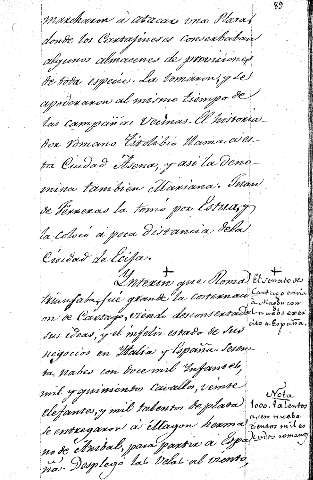 89
marcharon á atacar una Plaza,
donde los Cartagineses conserbaban
algunos almacenes de provisiones
de toda especie. La tomaron, y se
apoderaron al mismo tiempo de
las campañas vecinas. El historia-
dor romano Tit Libio llama á es-
ta Ciudad Asena, y así la deno-
mina tambien Mariana. Juan
de Ferreras la tomó por Estepa, y
la colocó á poca distancia de la
Ciudad de Ecija.
Interin que Roma
triunfaba, fue grande la consternaci-
on de Cartago, viendo desconcertadas
sus ideas, y el infeliz estado de sus
negocios en Italia y España. Sesen-
ta nabes con doce mil Infantes,
mil y quinientos Cavallos, veinte
elefantes, y mil talentos de plata
se entregaron á Magon herma-
no de Anibal, para partir a Espa-
ña. Desplegó las Velas al viento,
El senado de
Cartago envia
á Magon con
un nuebo exer-
cito a España.
Nota
1000. talentos